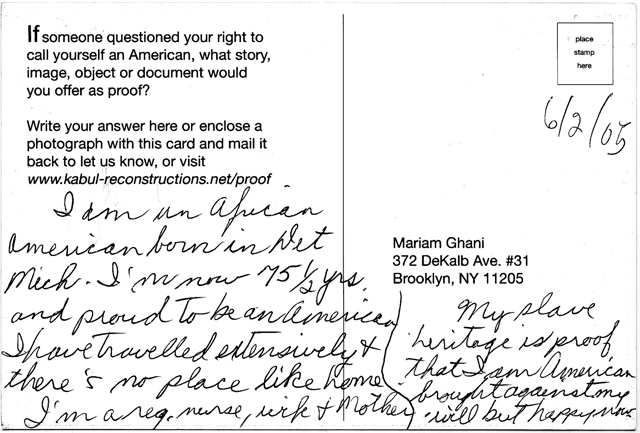 If someone questioned your right to
call yourself an American, what story,
image, object or document would
you offer as proof?
Write your answer here or enclose a
photograph with this card and mail it
back to let us know, or visit
www.kabul-reconstructions.net/proof
I am an African
American born in Det
Mich. I'm now 75 1/2 yrs.
and proud to be an American
I have travelled extensively &
there's no place like home
I'm a reg. nurse, wife & Mother
place
stamp
here
6/2/05
Mariam Ghani
372 DeKalb Ave. #31
Brooklyn, NY 11205
My slave
heritage is proof
that I am American
brought against my
will but happy now